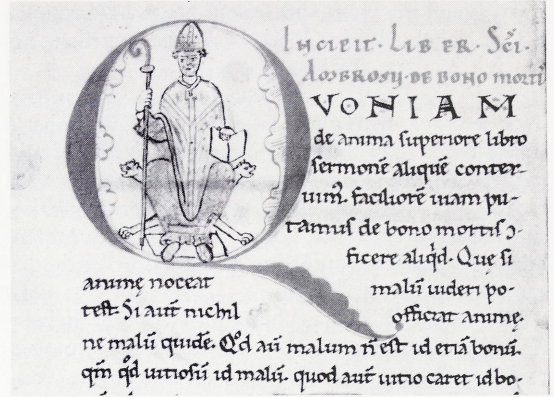 INCIPIT · LIBER · SCI ·
AMBROSIJ · DE BONO MORTI
QVONIAM
de anima superiore libro
sermonē aliquē conter-
uim᷒. faciliorē uiam pu-
tamus de bono mortis ɔ-
ficere aliq̇d. Quę si
animę noceat malū uideri po-
test. Si aut̄ nichil officiat animę.
ne malū quidē. Qd̄ aū malum n̄ est id etiā bonū.
qm̄ qd̄ uitiosū id malū. quod aut̄ uitio caret id bo-